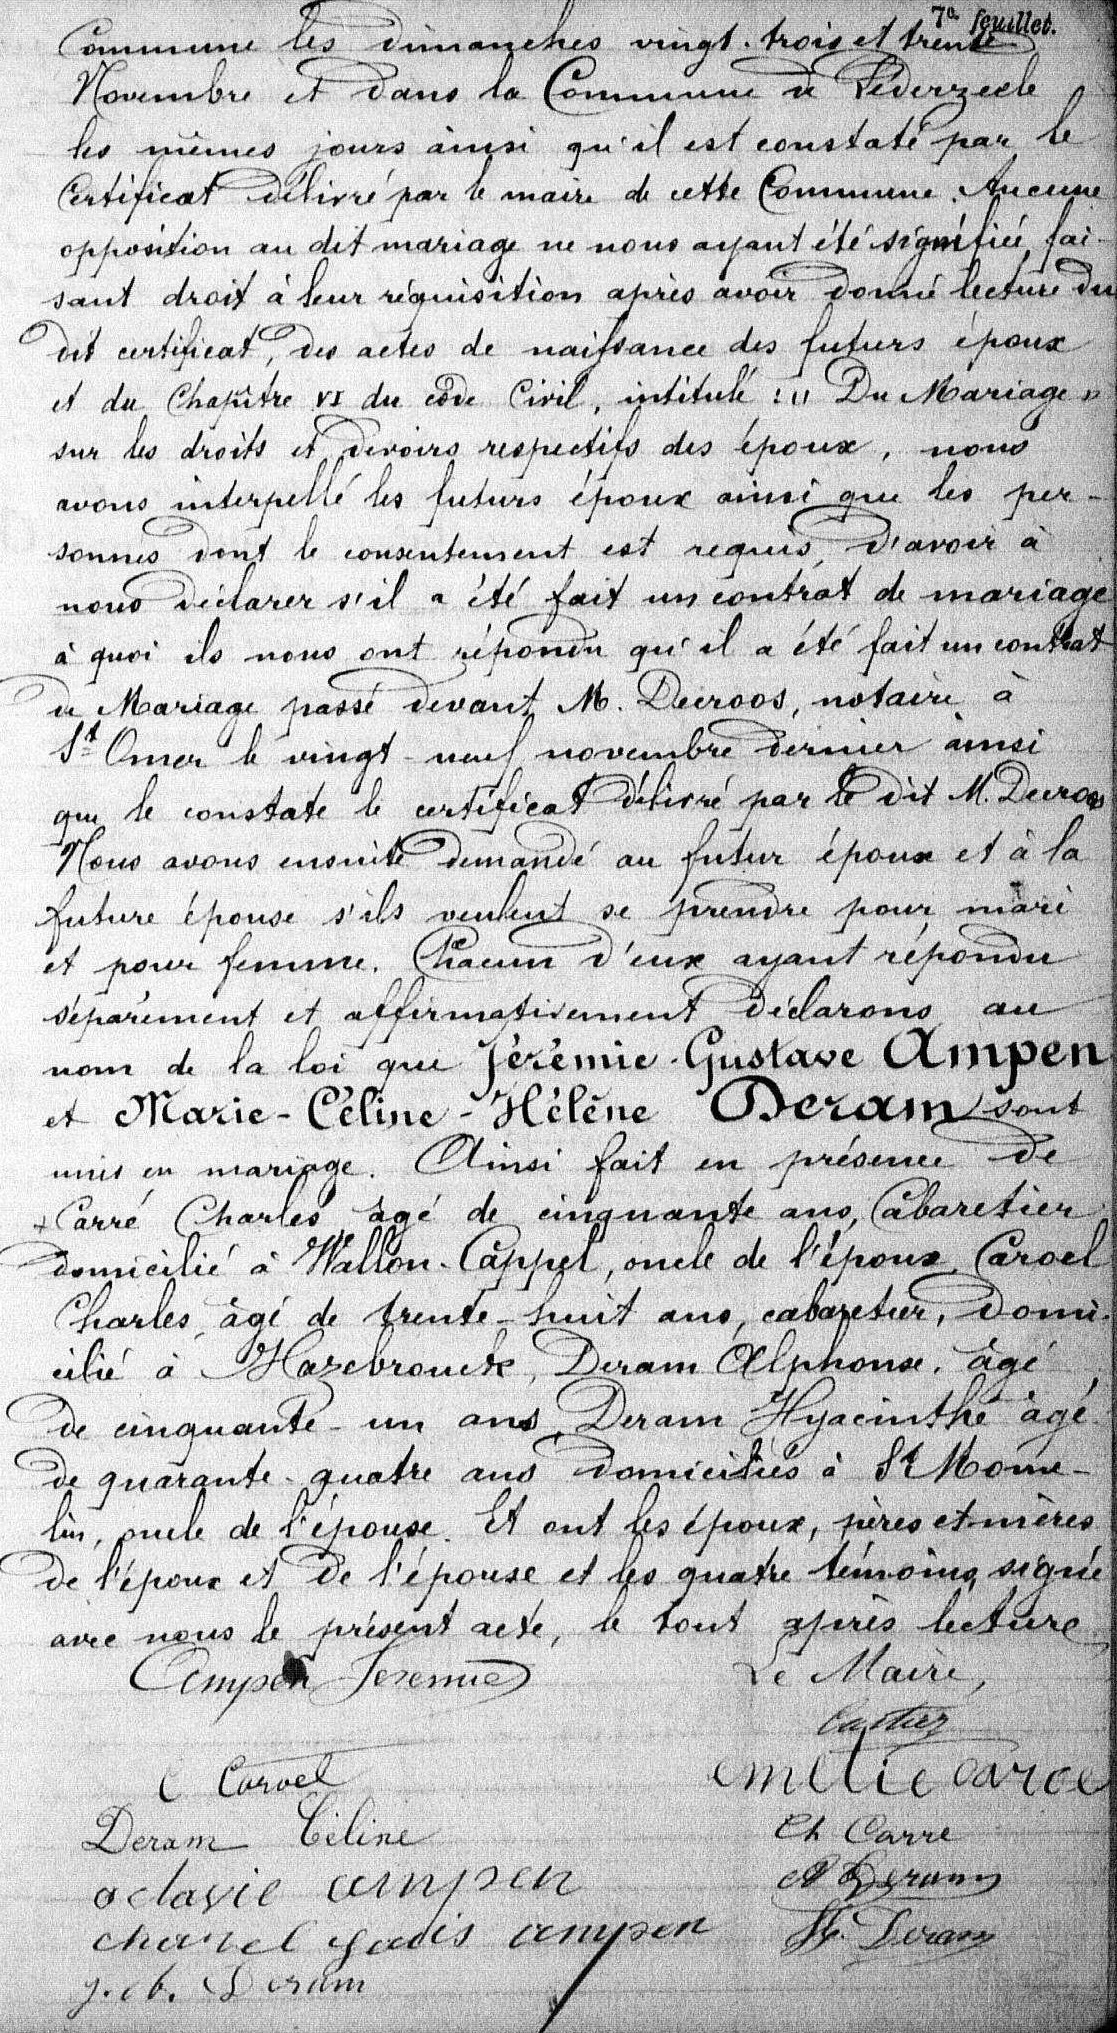 7e feuillet.
Commune les dimanches vingt-trois et trente
Novembre et dans la Commune de Lederzeele
les mêmes jours ainsi qu'il est constaté par le
Certificat délivré par le maire de cette Commune. Aucune
opposition au dit mariage ne nous ayant été signifiée, fai-
sant droit à leur réquisition après avoir donné lecture du
dit certificat, des actes de naissance des futurs époux
et du Chapître VI du côde Civil, intitulé : " Du Mariage "
sur les droits et devoirs respectifs des époux, nous
avons interpellé les futurs époux ainsi que les per-
sonnes dont le consentement est requis, d'avoir à
nous déclarer s'il a été fait un contrat de mariage
à quoi ils nous ont répondu qu'il a été fait un contrat
de Mariage passé devant M. Decroos, notaire à
St Omer le vingt-neuf novembre dernier ainsi
que le constate le certificat délivré par le dit M. Decroos
Nous avons ensuite demandé au futur époux et à la
future épouse s'ils veulent se prendre pour mari
et pour femme. Chacun d'eux ayant répondu
séparément et affirmativement déclarons au
nom de la loi que Jérémie-Gustave Ampen
et Marie-Céline-Hélène Deram sont
unis en mariage. Ainsi fait en présence de
+ Carré Charles, âgé de cinquante ans, Cabaretier
domicilié à Wallon-Cappel, oncle de l'époux, Caroel
Charles, âgé de trente-huit ans, cabaretier, domi-
cilié à Hazebrouck, Deram Alphonse, âgé
de cinquante-un ans, Deram Hyacinthe âgé
de quarante-quatre ans domiciliés à St Mome-
lin, oncle de l'épouse. Et ont les époux, pères et mères
de l'époux et de l'épouse et les quatre témoins, signé
avec nous le présent acte, le tout après lecture
Ampen Jeremie Le Maire,
C Caroel
Deram Céline Ch Carré
octavie ampen A Deram
ampen H. Deram
Deram